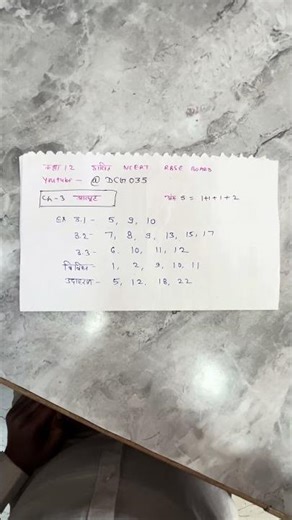 कक्षा 12 गणित NCERT RBSE BOARD
Youtube - @DCM035
Ch-3 आव्यूह अंक 5 = 1+1+1+2
EX 3.1 - 5, 9, 10
3.2 - 7, 8, 9, 13, 15, 17
3.3 - 6, 10, 11, 12
विविध - 1, 2, 9, 10, 11
उदाहरण - 5, 12, 18, 22